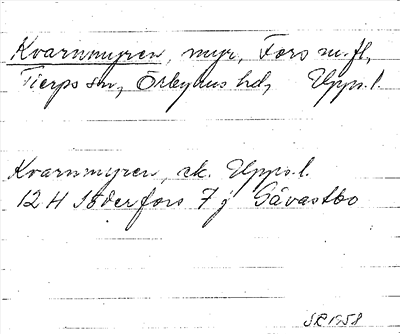 Kvarnmyren, myr, Fors m.fl,
Tierps sn, Örbyhus hd, Upps.l.
Kvarnmyren, ek. Upps.l.
12 H Söderfors 7 j Gåvastbo
SR 1958